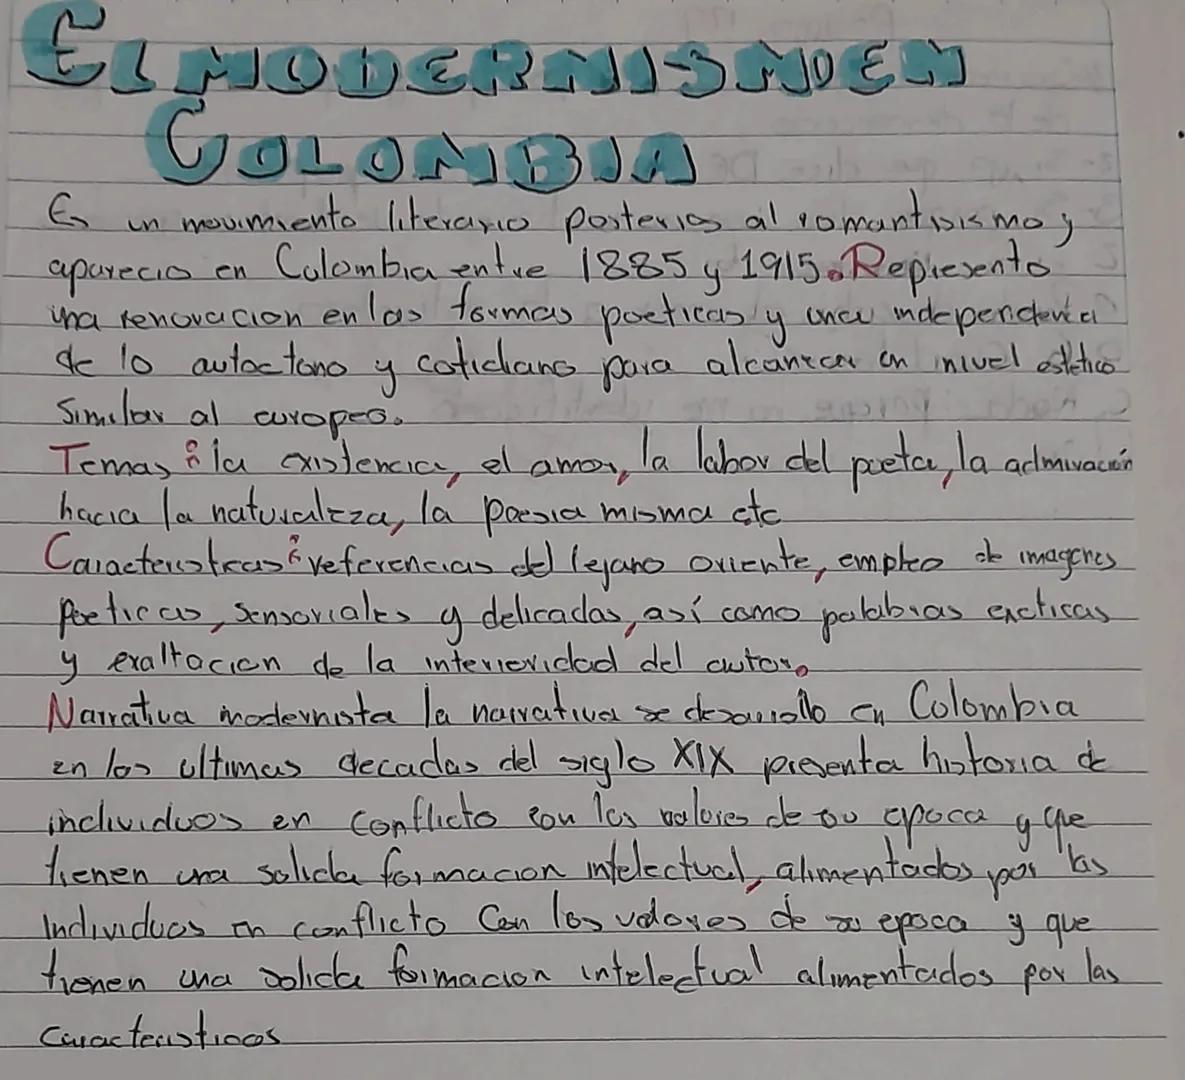 EL MODERNISMO EN
COLOMBIA
Es un movimiento literario posterios al romantisismo y
aparecio en Colombia entre 1885 y 1915. Represento
una renovacion en las formas poeticas y una independencia
de lo autoctono y cotidiano para alcanzar un nivel estetico
Similar al europeo.
Temas: la existencia, el amor, la labor del poeta, la admiración
hacia la naturaleza, la poesia misma etc
Caracteristicas: referencias del lejano oriente, empleo de imagenes
Poeticas, sensoriales y delicadas, así como palabras exoticas
y exaltacion de la interioridad del autor.
Narrativa modernista la narrativa se desarrollo en Colombia
en los ultimas decadas del siglo XIX presenta historia de
individuos en conflicto con los valores de su epoca y que
tienen una solida formacion intelectual, alimentados por las
Individuos en conflicto Con los valores de su epoca y que
tienen una solida formacion intelectual alimentados por las
Caracteristicas